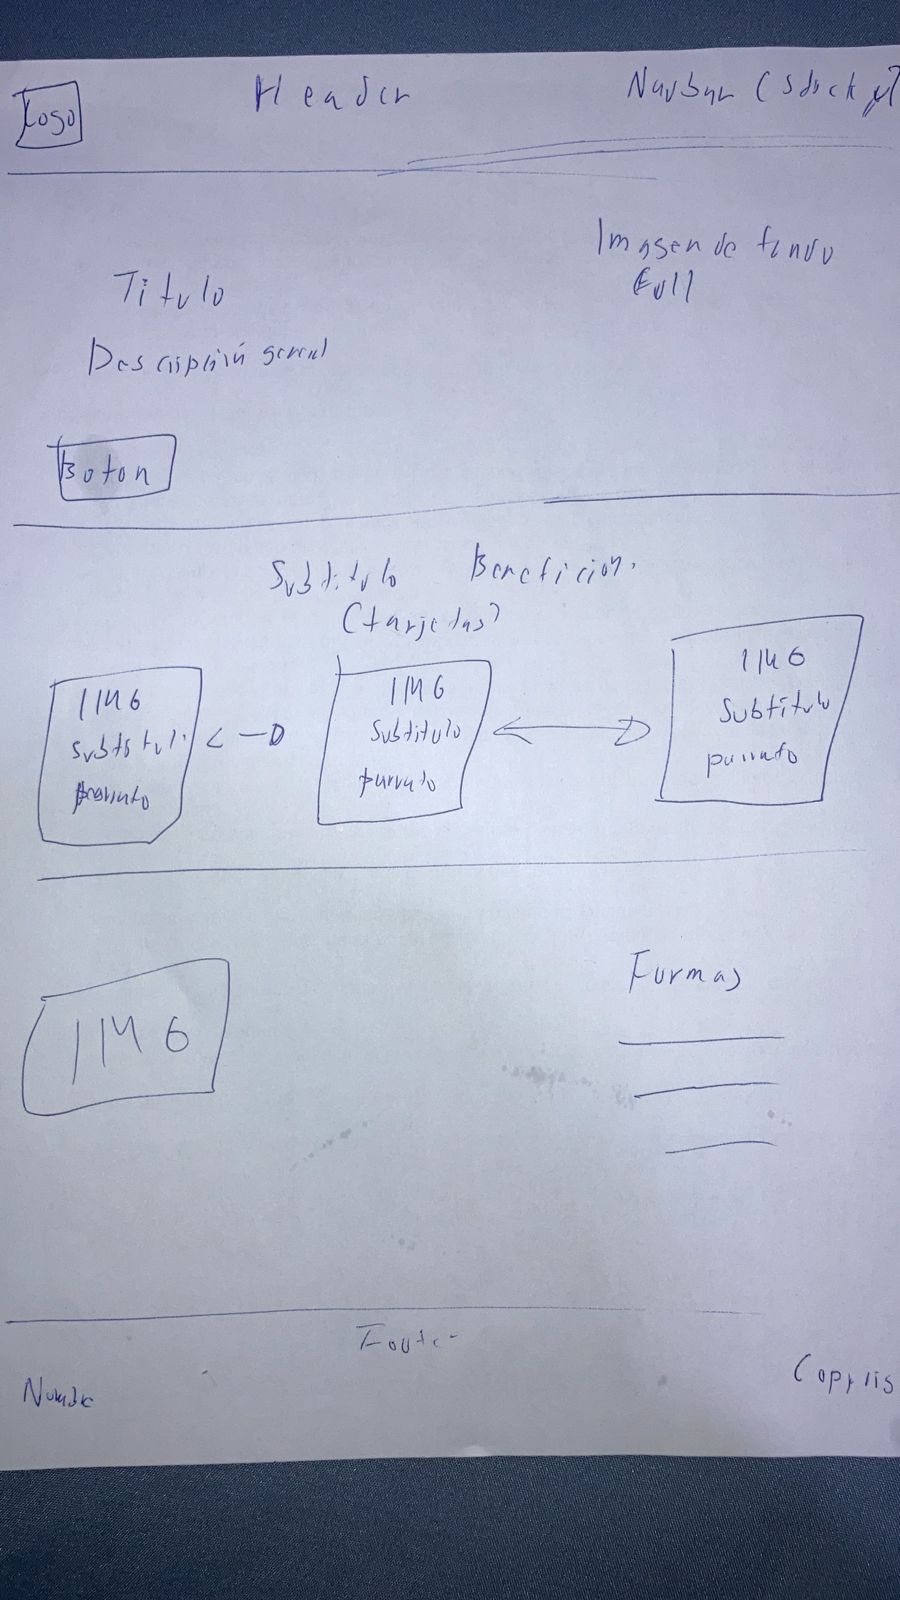 Logo
Header
Navbar (
Titulo
Imagen de fondo
Full
Descripción general
Boton
Subtitulo Beneficios.
(tarjetas)
IMG
Subtitulo
parrafo
IMG
Subtitulo
parrafo
IMG
Subtitulo
parrafo
IMG
Formas
Footer
Nombre